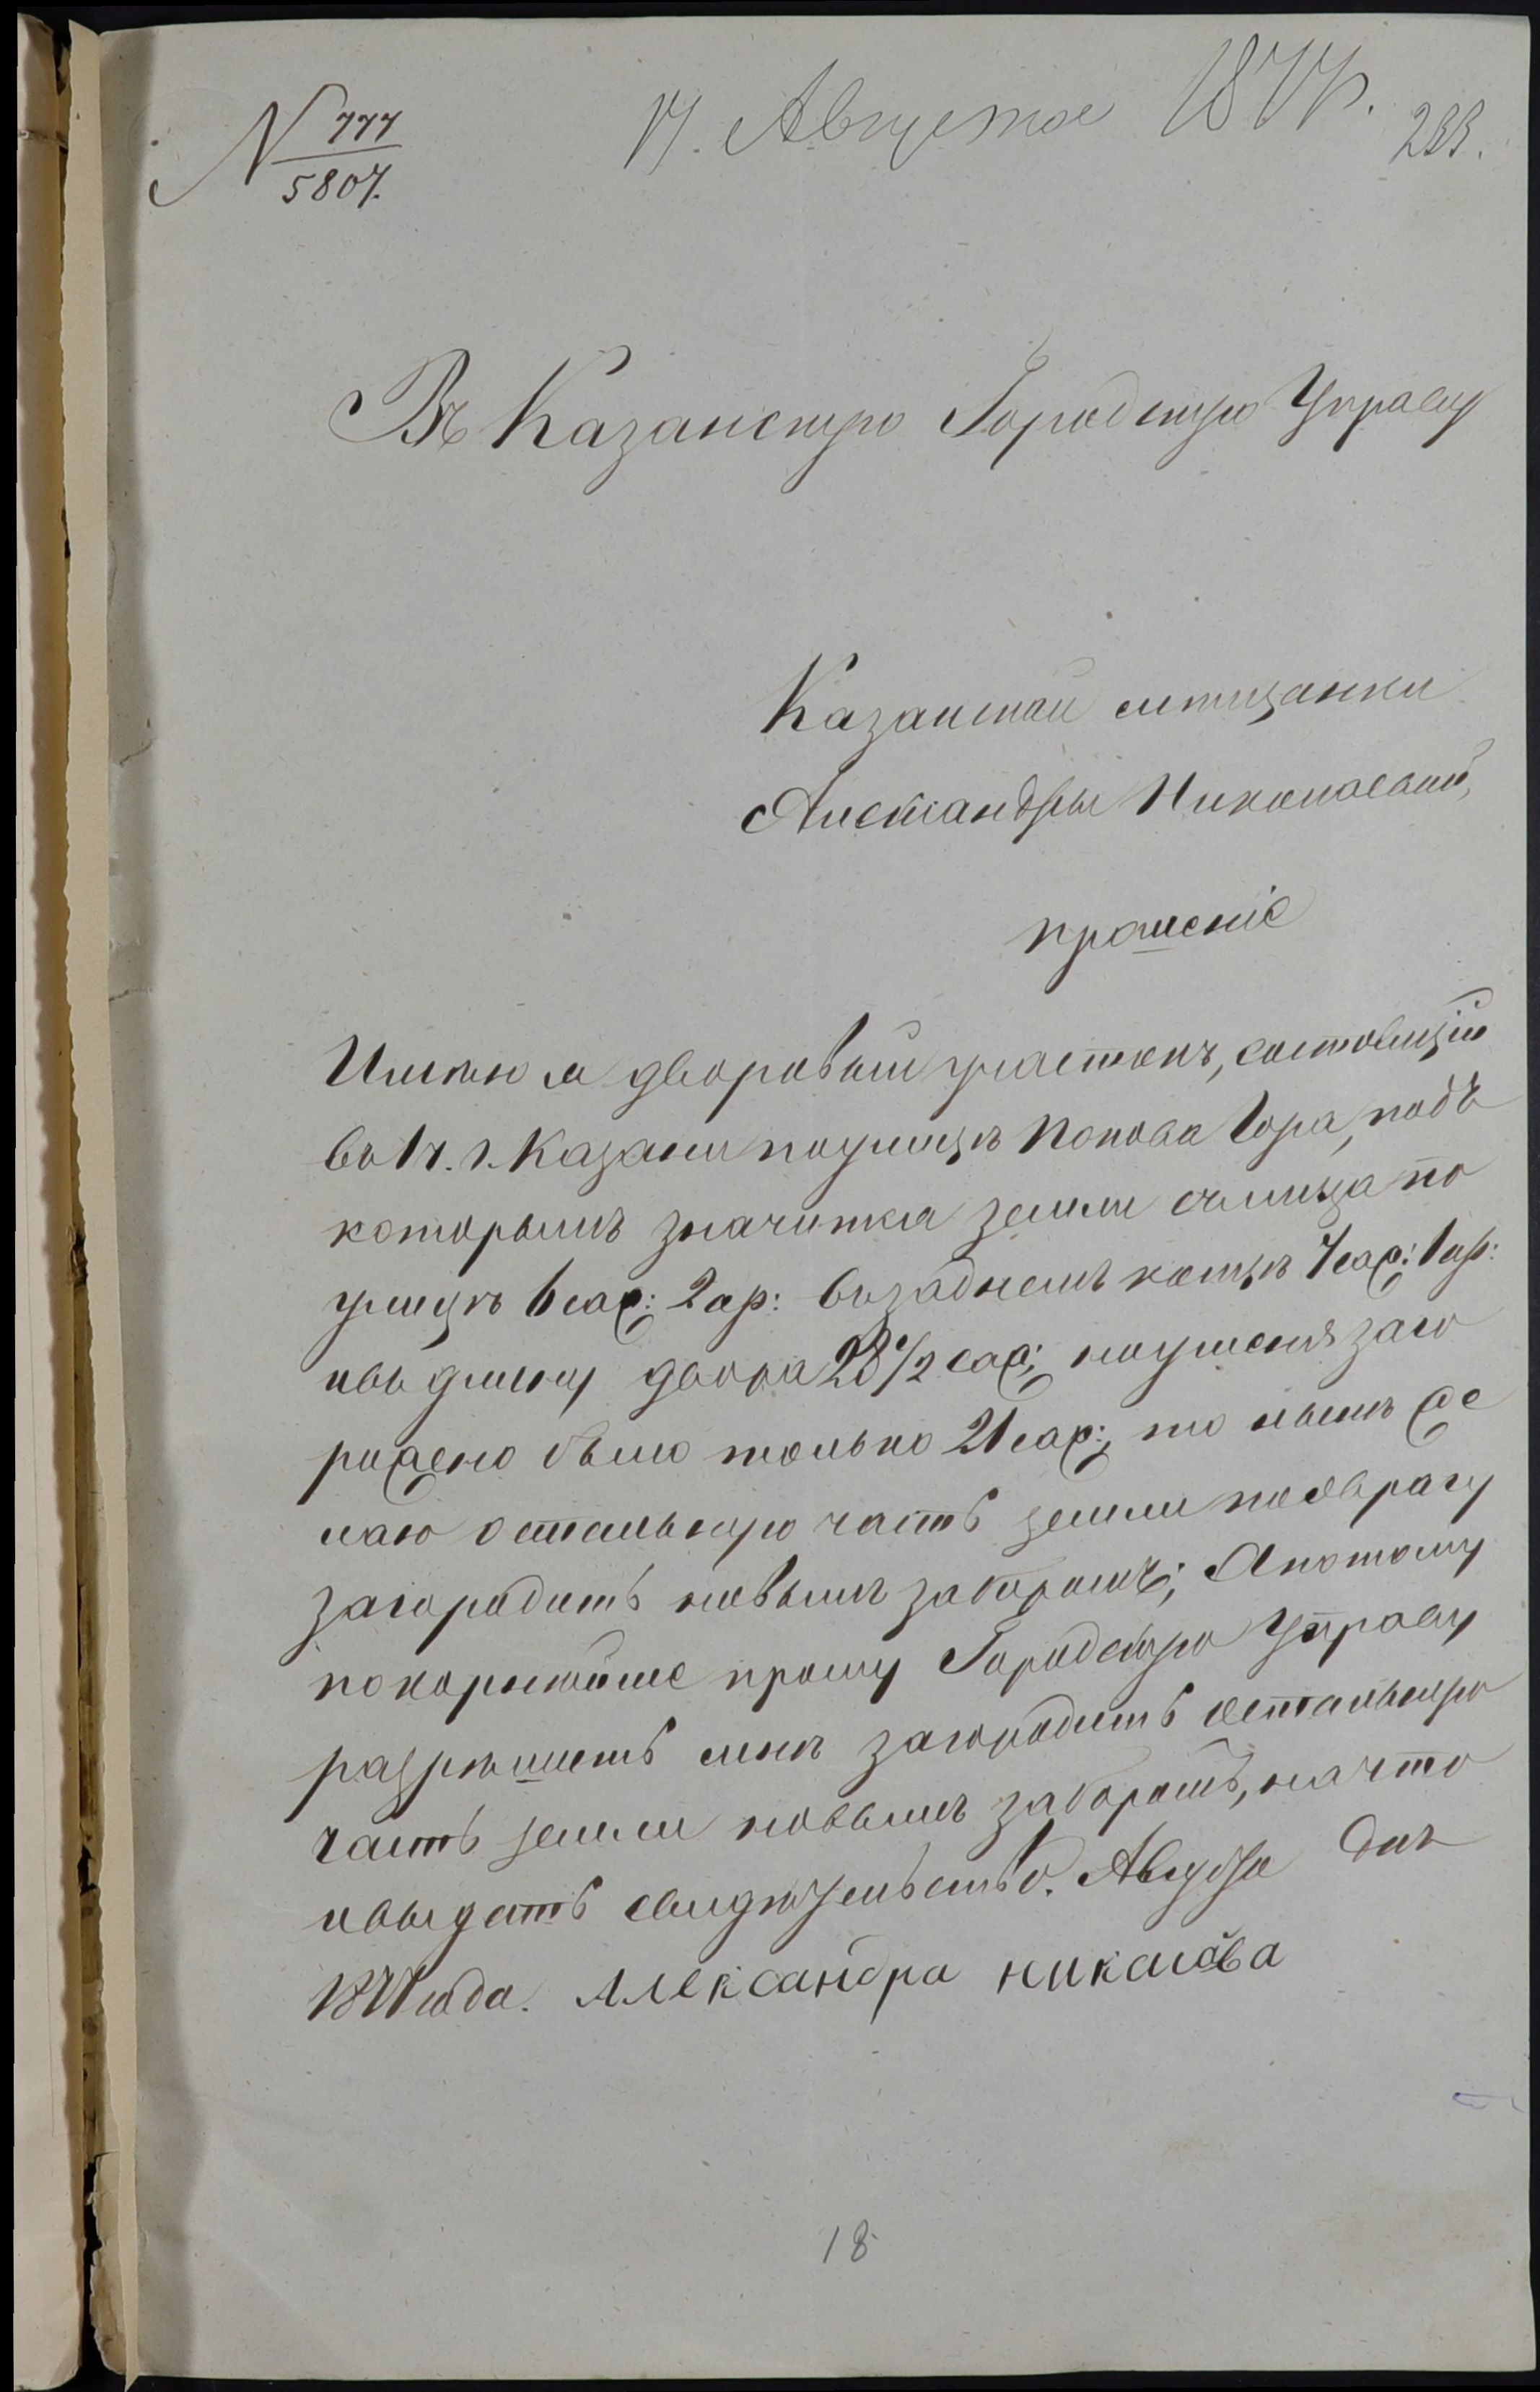 N 777
5807.
17. Августа 1877.
233.
Въ Казанскую Городскую Управу
Казанской мѣщанки
Александры Николаевой,
прошеніе
Имѣю я дворовый участокъ, состоящій
во 1 ч. г. Казани по улицѣ Попова Гора, подъ
которымъ значится земли съ лица по
улицѣ 6 саж: 2 ар: въ заднемъ концѣ 7 саж: 1 ар:
и въ длину двора 28 1/2 саж; но у меня заго
рожено было только 21 саж:, то нынѣ же
лаю остальную часть земли по оврагу
загородить новымъ заборомъ; А потому
покорнѣйше прошу Городскую Управу
разрѣшить мнѣ загородить остальную
часть земли новымъ заборомъ, на что
и выдать свидѣтельство. Августа дня
1877 года. Александра николаева
18